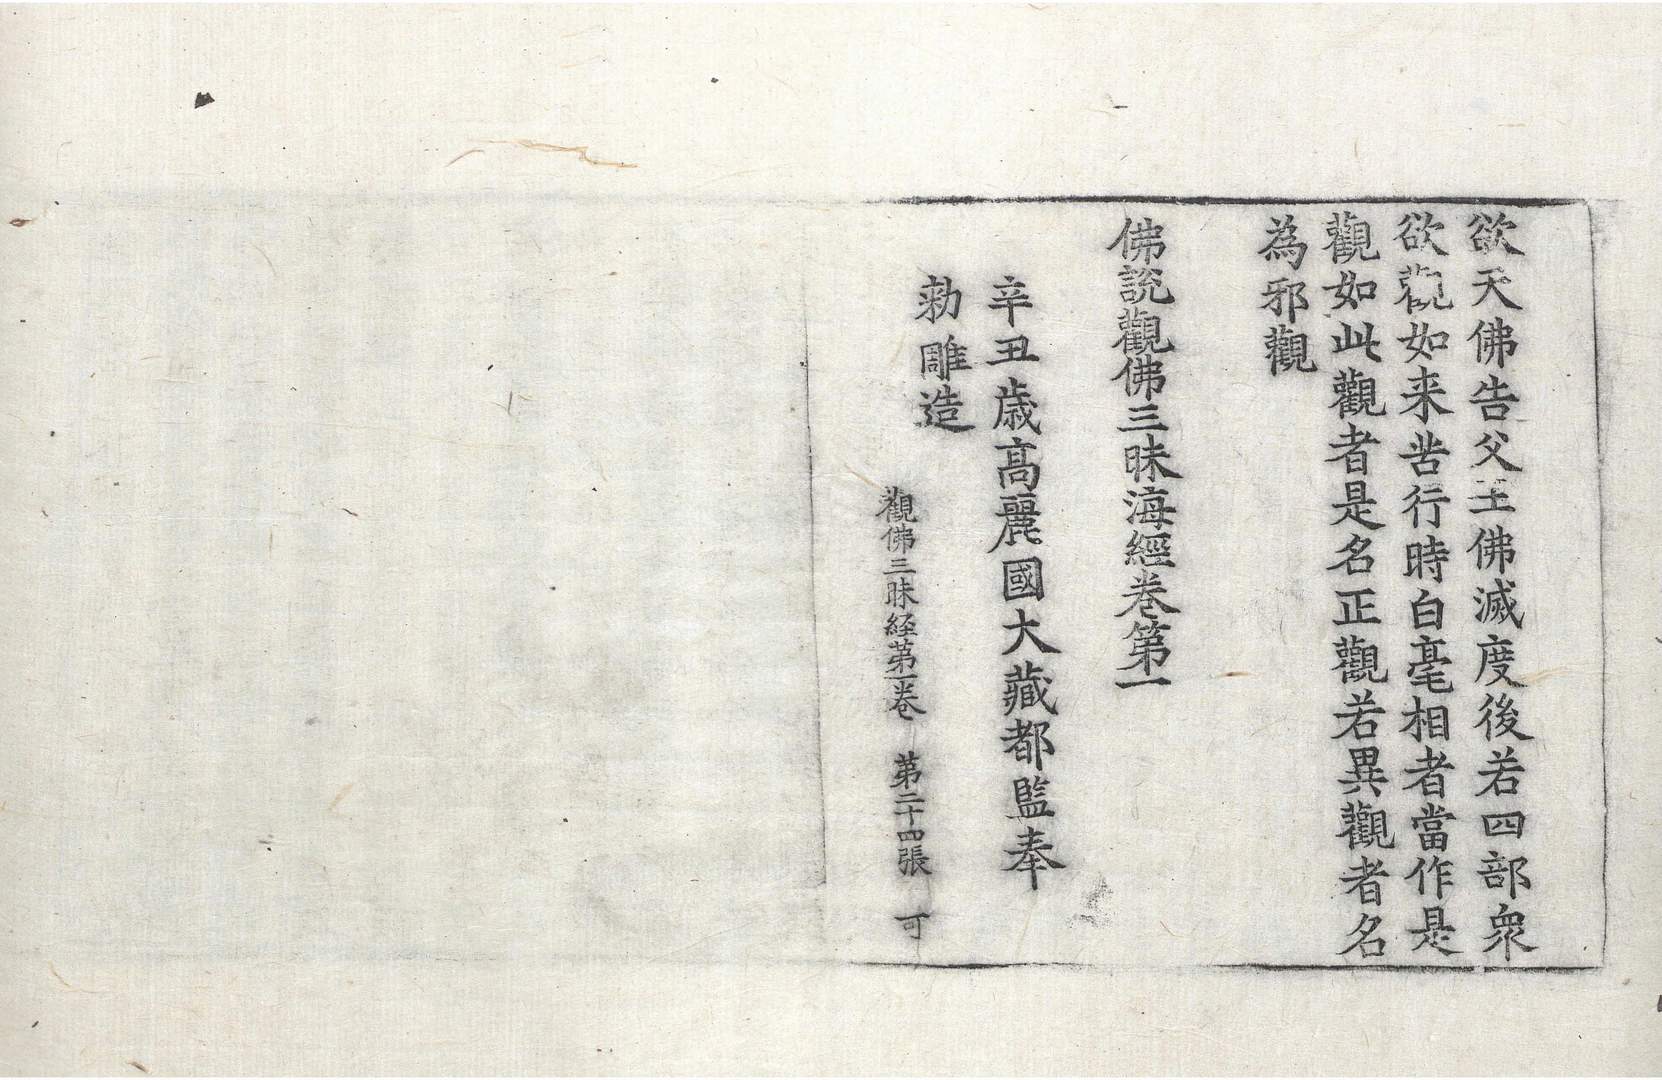 欲天佛告父王佛滅度後若四部衆
欲觀如来苦行時白毫相者當作是
觀如此觀者是名正觀若異觀者名
為邪觀
佛說觀佛三昧海經卷第一
辛丑歳髙麗國大藏都監奉
勅雕造
觀佛三昧経第一卷 第二十四張 可